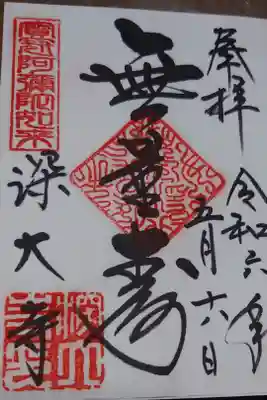 奉拝
令和六年
五月十六日
無量寿
寳冠阿彌陀如来
深大寺